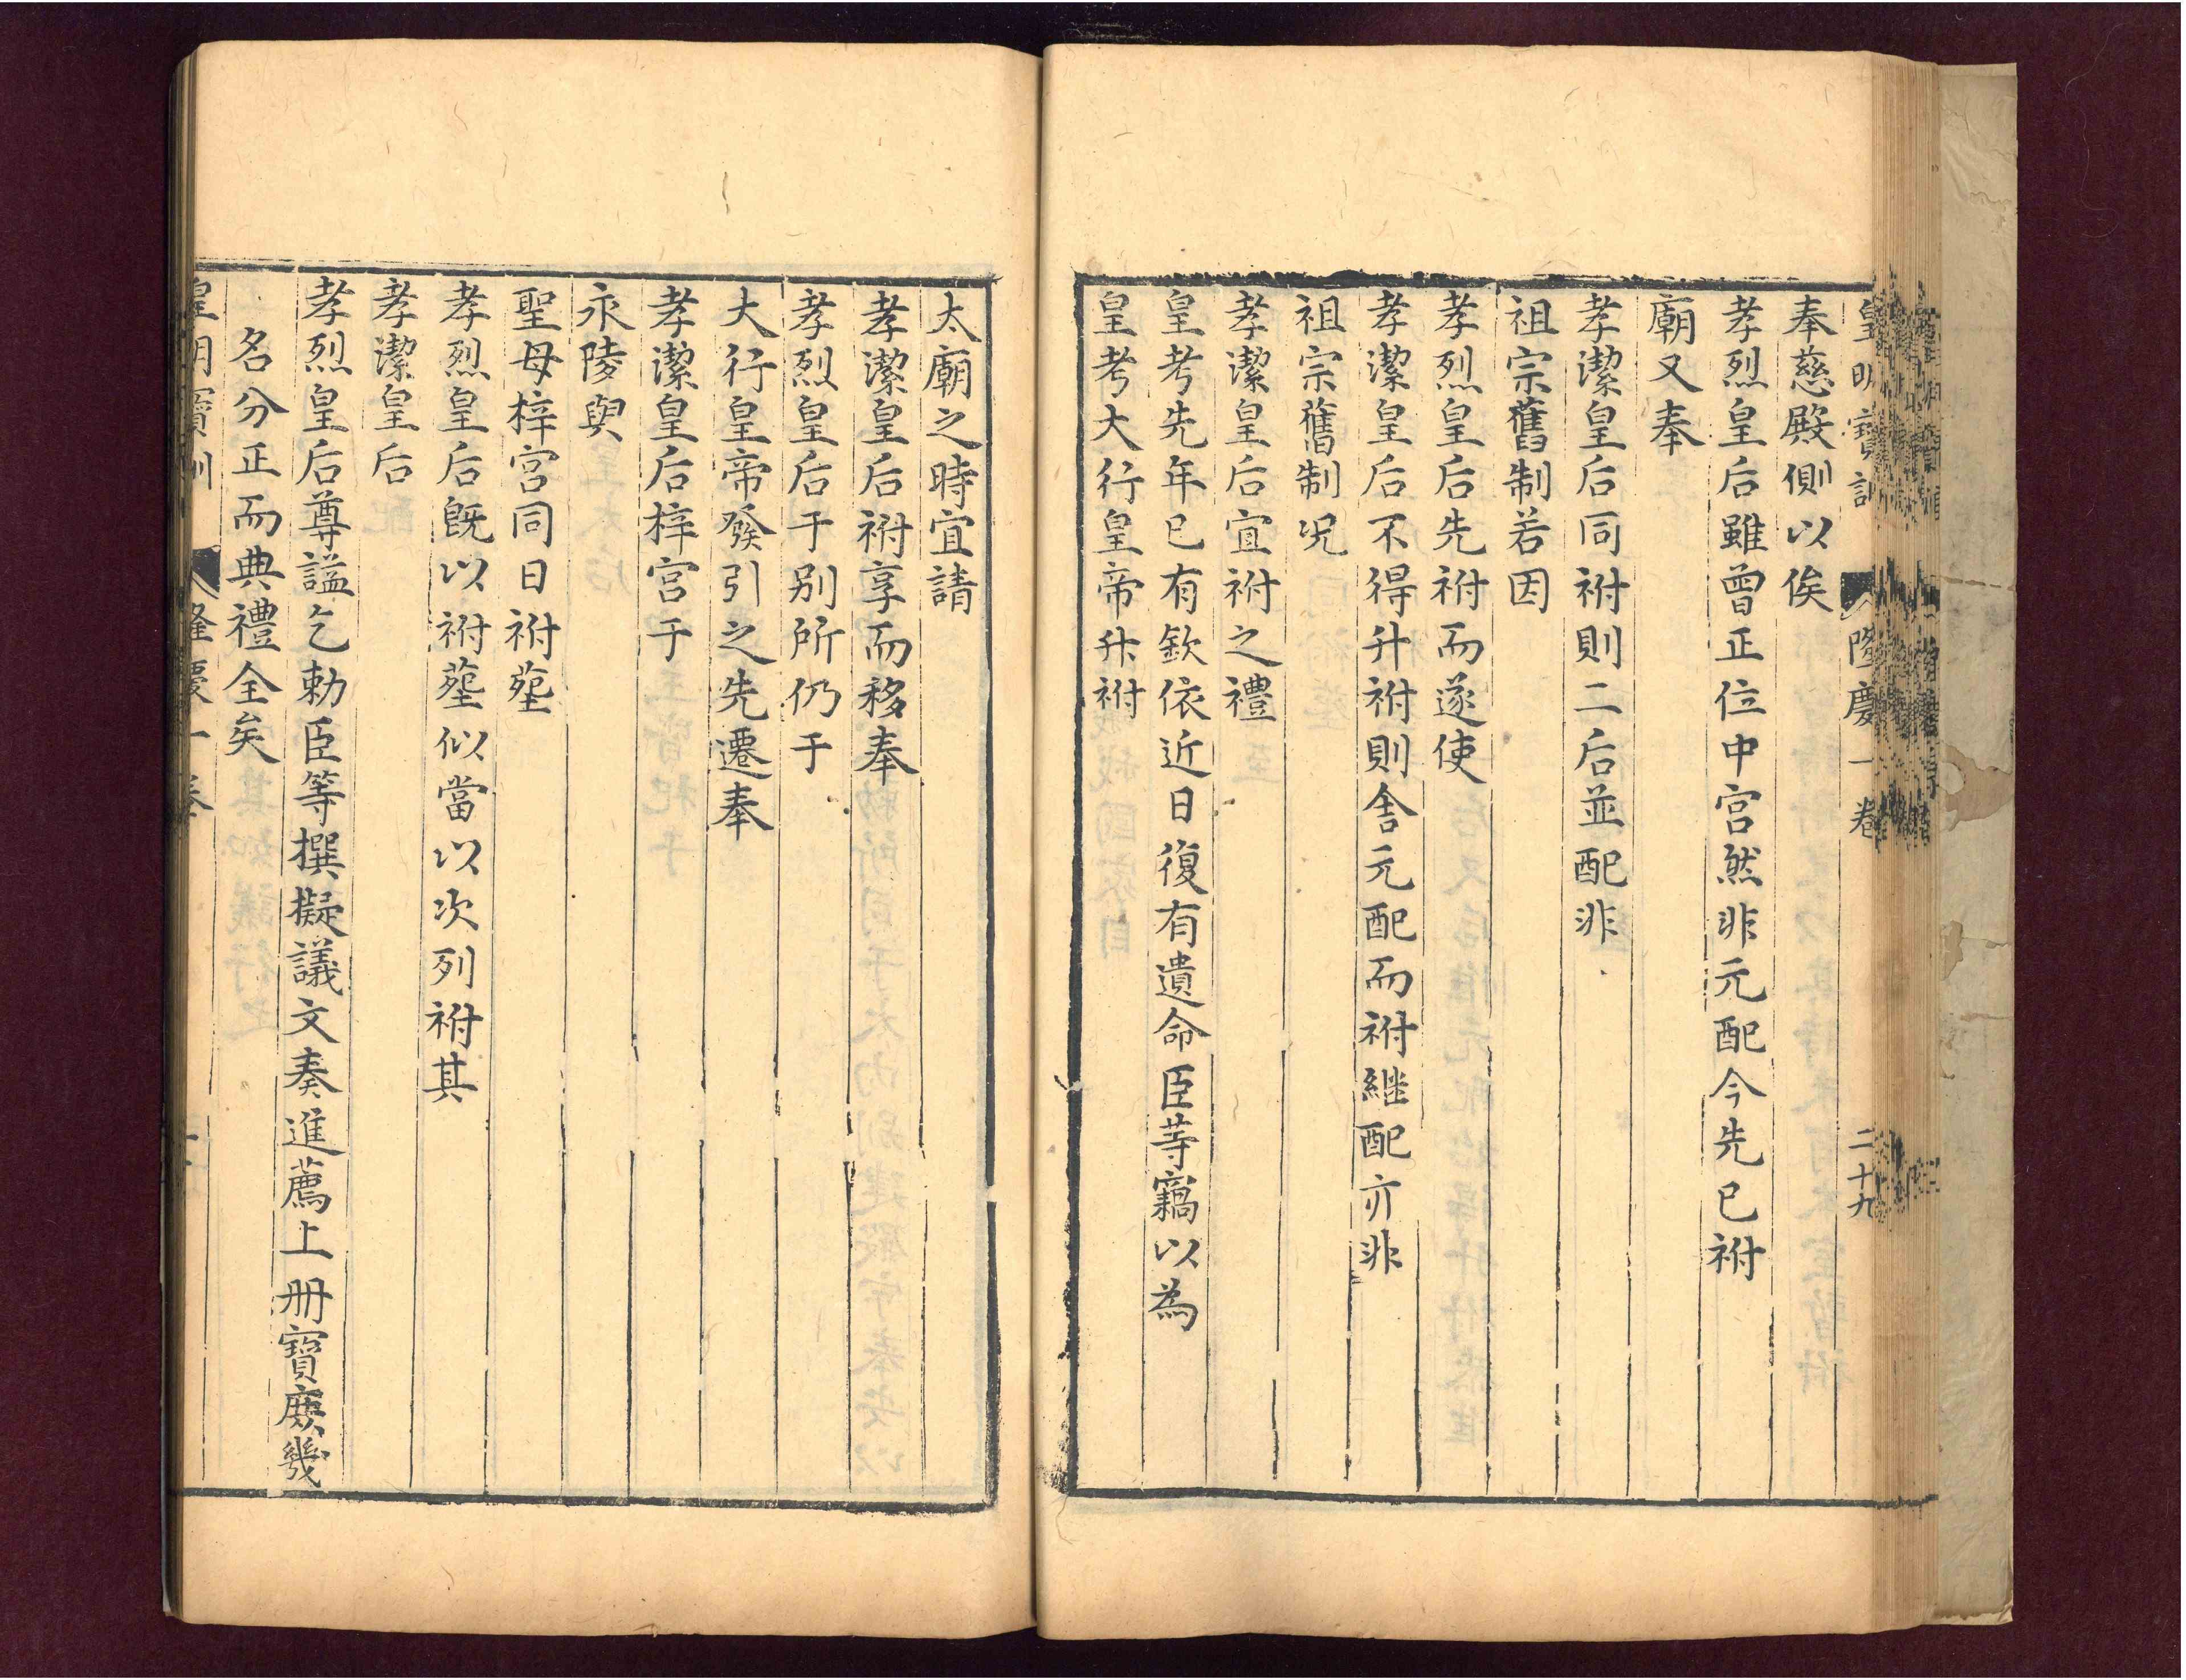 皇明寶訓 隆慶一卷 二十九
奉慈殿側以俟
孝烈皇后雖曾正位中宮然非元配今先已祔
廟又奉
孝潔皇后同祔則二后並配非
祖宗舊制若因
孝烈皇后先祔而遂使
孝潔皇后不得升祔則舍元配而祔継配亦非
祖宗舊制况
孝潔皇后宜祔之禮
皇考先年已有欽依近日復有遺命臣等竊以為
皇考大行皇帝升祔
太廟之時宜請
孝潔皇后祔享而移奉
孝烈皇后于别所仍于
大行皇帝發引之先遷奉
孝潔皇后梓宮于
永陵與
聖母梓宮同日祔塟
孝烈皇后旣以祔塟似當以次列祔其
孝潔皇后
孝烈皇后尊謚乞勅臣等撰擬議文奏進薦上册寶庻幾
名分正而典禮全矣
皇明寶訓 隆慶一卷